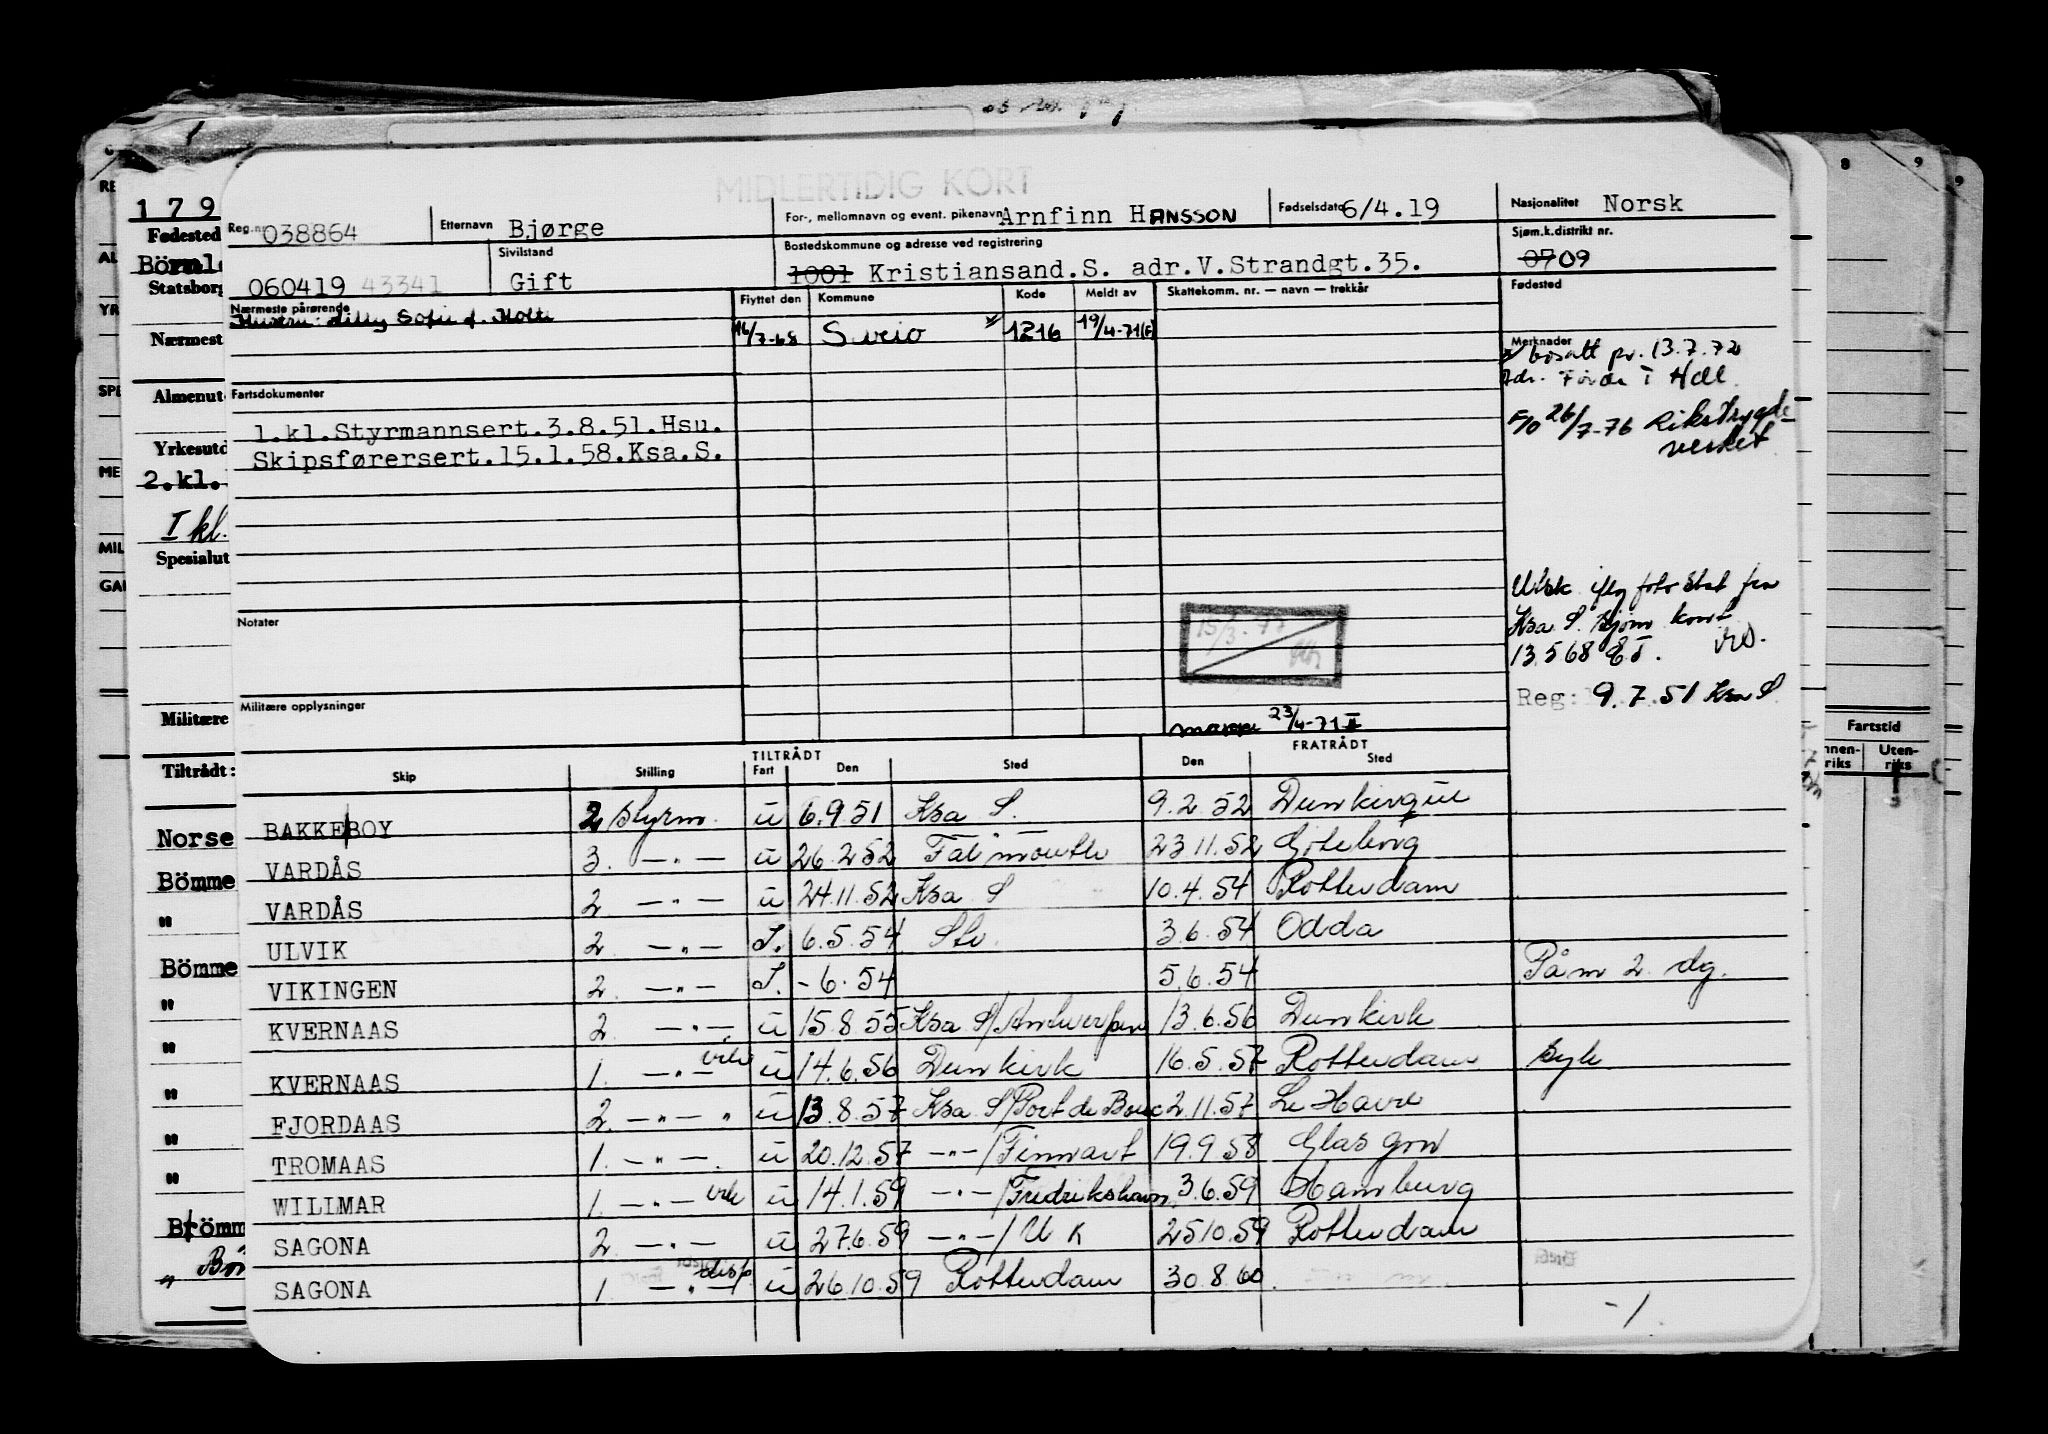 MIDLERTIDIG KORT
Reg.nr. 038864 Etternavn Bjørge For-, mellomnavn og event. pikenavn Arnfinn HANSSON Fødselsdato 6/4.19 Nasjonalitet Norsk
060419 43341 Sivilstand Gift Bostedskommune og adresse ved registrering 1001 Kristiansand.S. adr.V.Strandgt.35. Sjøm.k.distrikt nr. 07 09
Nærmeste pårørende Flyttet den Kommune Kode Meldt av Skattekomm. nr. — navn — trekkår Fødested
Hustru: Lilly Sofie f. Holte 16/7-68 Sveio 1216 19/4-71(F)
Merknader
bosatt pr. 13.7.72
Adr. Førde i Hdl.
F/O 26/7-76 Rikstrygde-
verket
Fartsdokumenter
1.kl.Styrmannsert.3.8.51.Hsu.
Skipsførersert.15.1.58.Ksa.S.
Utsk. iflg fotostat fra
Ksa. S. Sjøm. kont
13.5 68 E.T.
Notater
15/3-77
Reg: 9.7.51 Ksa S
Militære opplysninger
mappe 23/4-71
TILTRÅDT FRATRÅDT
Skip Stilling Fart Den Sted Den Sted
BAKKEBOY 2 styrm. u 6.9.51 Ksa S. 9.2.52 Dunkerque
VARDÅS 3. —"— u 26.2.52 Falmouth 23.11.52 Göteborg
VARDÅS 2 —"— u 24.11.52 Ksa S 10.4.54 Rotterdam
ULVIK 2 —"— I. 6.5.54 Stv. 3.6.54 Odda
VIKINGEN 2. —"— I. -6.54 5.6.54 Påm 2 dg.
KVERNAAS 2. —"— u 15.8.55 Ksa S/Antwerpen 13.6.56 Dunkirk
KVERNAAS 1. —"— u 14.6.56 Dunkirk 16.5.57 Rotterdam syk
FJORDAAS 2. —"— " u 13.8.57 Ksa S/Port de Bouc 2.11.57 Le Havre
TROMAAS 1. —"— u 20.12.57 —"—/Finnart 19.9.58 Glasgow
WILLMAR 1. —"— u 14.1.59 —"—/Fredrikshavn 3.6.59 Hamburg
SAGONA 2. —"— u 27.6.59 —"—/U K 25.10.59 Rotterdam
SAGONA 1. —"— disp. u 26.10.59 Rotterdam 30.8.60
-/
179
Fødested
Statsborg
Nærmest
Almenut
Yrkesutd
2.kl.
I kl.
Spesialut
Militære
Tiltrådt:
Norse
Bömme
"
Bömme
"
"
"
"
"
Brömm
"
8 9
Fartstid
Innen-riks Uten-riks